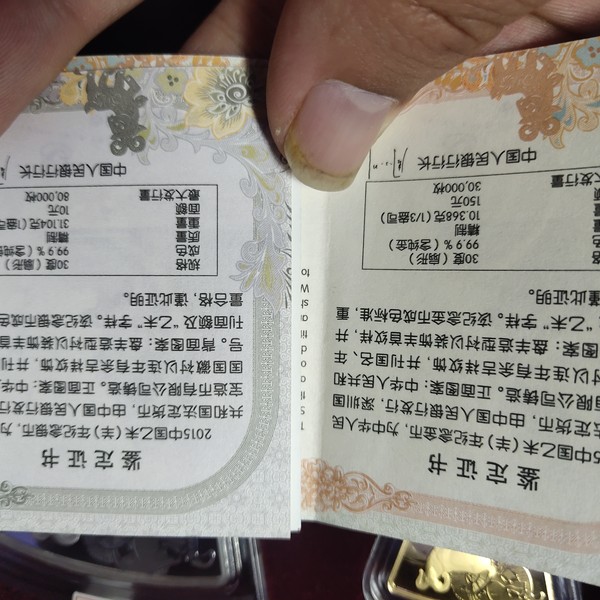 鉴定证书
15中国乙未(羊)年纪念金币,为中华人民
法定货币,由中国人民银行发行,深圳国
有限公司铸造。正面图案:中华人民共和
衬以连年有余吉祥纹饰,并刊国名、年
图案:盘羊造型衬以装饰羊首纹样,并
“乙未”字样。该纪念金币成色标准,重
谨此证明。
规格 30度(扇形)
成色 99.9%(含纯金)
质量 精制
重量 10.368克(1/3盎司)
面额 150元
大发行量 30,000枚
中国人民银行行长
鉴定证书
2015中国乙未(羊)年纪念银币,为
共和国法定货币,由中国人民银行发行
宝造币有限公司铸造。正面图案:中华
国国徽衬以连年有余吉祥纹饰,并刊
号。背面图案:盘羊造型衬以装饰羊首
刊面额及“乙未”字样。该纪念银币成
量合格,谨此证明。
规格 30度(扇形)
成色 99.9%(含纯
质量 精制
重量 31.104克(1盎司
面额 10元
最大发行量 80,000枚
中国人民银行行长